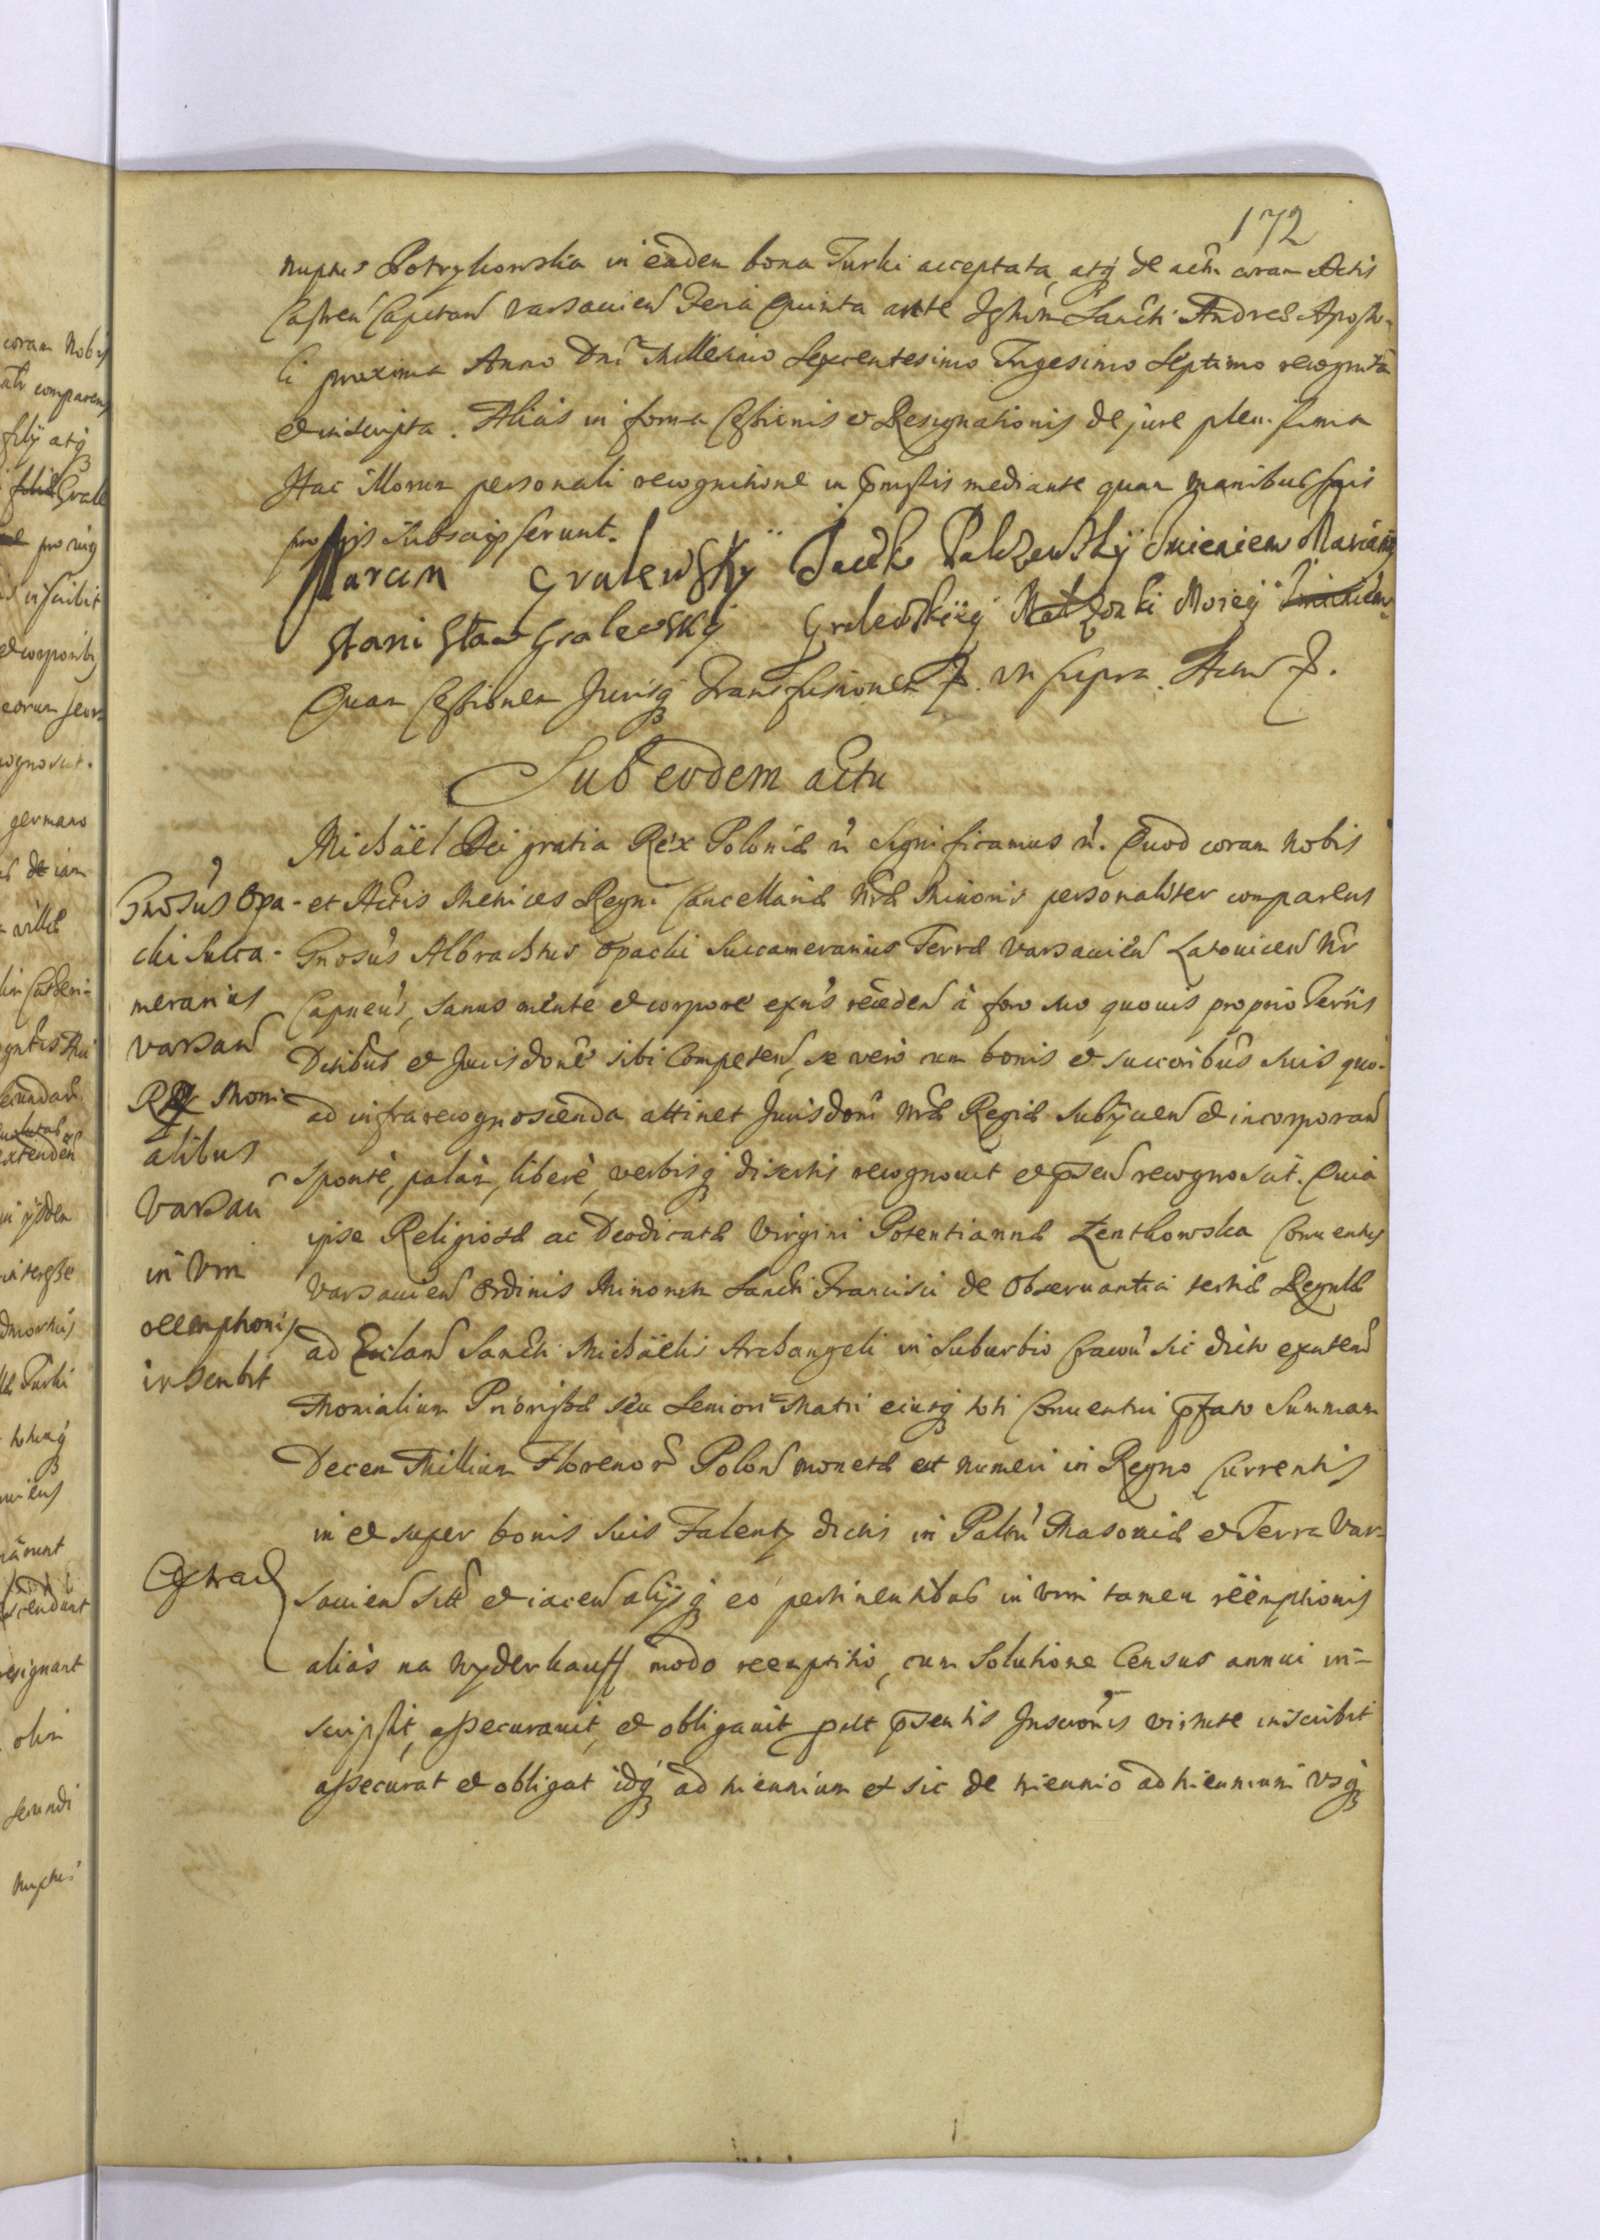 172
nuptis Potrykowska in eadem bona Turki acceptata, atq de actu coram Actis
Castren Capitan Varsavien Feria Quinta ante Festum Sancti Andreæ Aposto-
li proxima Anno Dni Millesimo Sexcentesimo Trigesimo Septimo recognita
et inscripta. Alias in forma Cessionis et Resignationis de jure plenissima
Hac illorum personali recognitione in præmissis mediante quam manibus suis
proprijs subscripserunt.
Marcin Gralewsky Jacek Palczewskÿ Imieniem Mariany
Stanisław Gralewsky Gralewskieÿ Małżonki Moieÿ
Quam Cessionem Jurisq Transfusionem P. Vt supra. Actum P.
Sub eodem actu
Michäel Dei gratia Rex Poloniæ &c Significamus &c. Quod coram Nobis
et Actis Metrices Regni Cancellariæ Nræ Minoris personaliter comparens
Gnosus Albrachtus Opacki Succamerarius Terræ Varsavien Latovicen Nr
Capneus, sanus mente et corpore exns receden à foro suo quovis proprio Terris
Ditibus et Jurisdone sibi Competen, se vero cum bonis et succoribus suis quo-
ad infrarecognoscenda attinet Jurisdoni Nræ Regiæ subijcien et incorporan
sponte, palàm, liberè, verbisq disertis recognovit et psen recognoscit. Quia
ipse Religiosæ ac Deodicatæ Virgini Potentiannæ Zentkowska Conventus
Varsavien Ordinis Minorum Sancti Francisci de Observantia tertiæ Regulæ
ad Ecclam Sancti Michäelis Archangeli in Suburbio Cracou sic dicto exnten
Monialium Priorissæ seu Seniori Matri eiusq toti Conventui pfato Summam
Decem Millium Florenor Polon monetæ et numeri in Regno Currentis
in et super bonis suis Falenty dictis in Paltu Masoviæ et Terra Var-
savien sitt et iacen alijsq eò pertinentibus in vim tamen reëmptionis
aliàs na wyderkauff modo reemptitio, cum solutione Census annui in-
scripsit, assecuravit, et obligavit pult psentis Inscronis virtute inscribit
assecurat et obligat idq ad triennium et sic de triennio ad triennium usq
Gnosus Opa-
cki Succa-
merarius
Varsan
Rx Moni-
alibus
Varsau
in Vim
reemptionis
inscribit